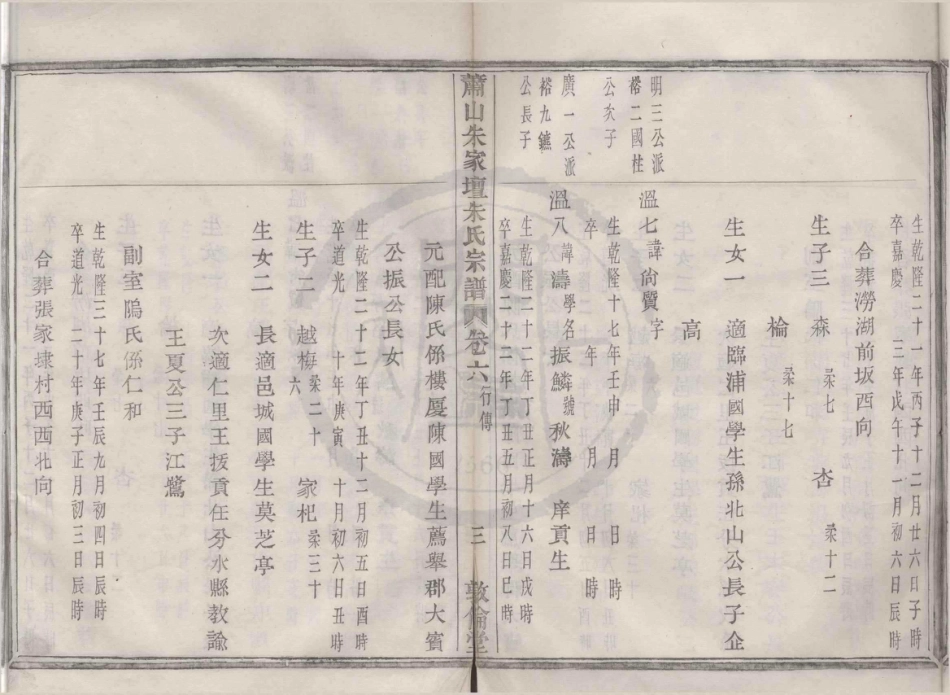 生乾隆二十一年丙子十二月廿六日子時
卒嘉慶三年戊午十一月初六日辰時
合葬澇湖前坂西向
生子三 森 梁七 杏 梁十二
檢 梁十七
生女一 適臨浦國學生孫北山公長子企
高
明三公派
裕二國柱
公次子
溫七諱尙賢字
生乾隆十七年壬申 月 日 時
卒 年 月 日 時
廣一公派
裕九鑣
公長子
溫八諱濤學名振鱗號秋濤 庠貢生
生乾隆二十二年丁丑正月十六日戌時
卒嘉慶二十二年丁丑五月初八日巳時
蕭山朱家壇朱氏宗譜 卷六 行傳 三 敦倫堂
元配陳氏係樓厦陳國學生薦舉郡大賓
公振公長女
生乾隆二十二年丁丑十二月初五日酉時
卒道光 十年庚寅 十月初六日丑時
生子二 越梅 梁二十六 家杞 梁三十
生女二 長適邑城國學生莫芝亭
次適仁里王拔貢任分水縣教諭
王夏公三子江鷺
副室鴎氏係仁和
生乾隆三十七年壬辰九月初四日辰時
卒道光 二十年庚子正月初三日辰時
合葬張家埭村西西北向